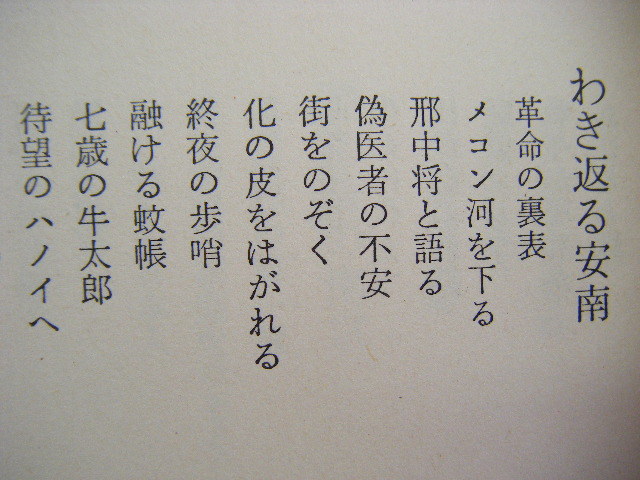 わき返る安南
革命の裏表
メコン河を下る
邢中将と語る
偽医者の不安
街をのぞく
化の皮をはがれる
終夜の歩哨
融ける蚊帳
七歳の牛太郎
待望のハノイへ